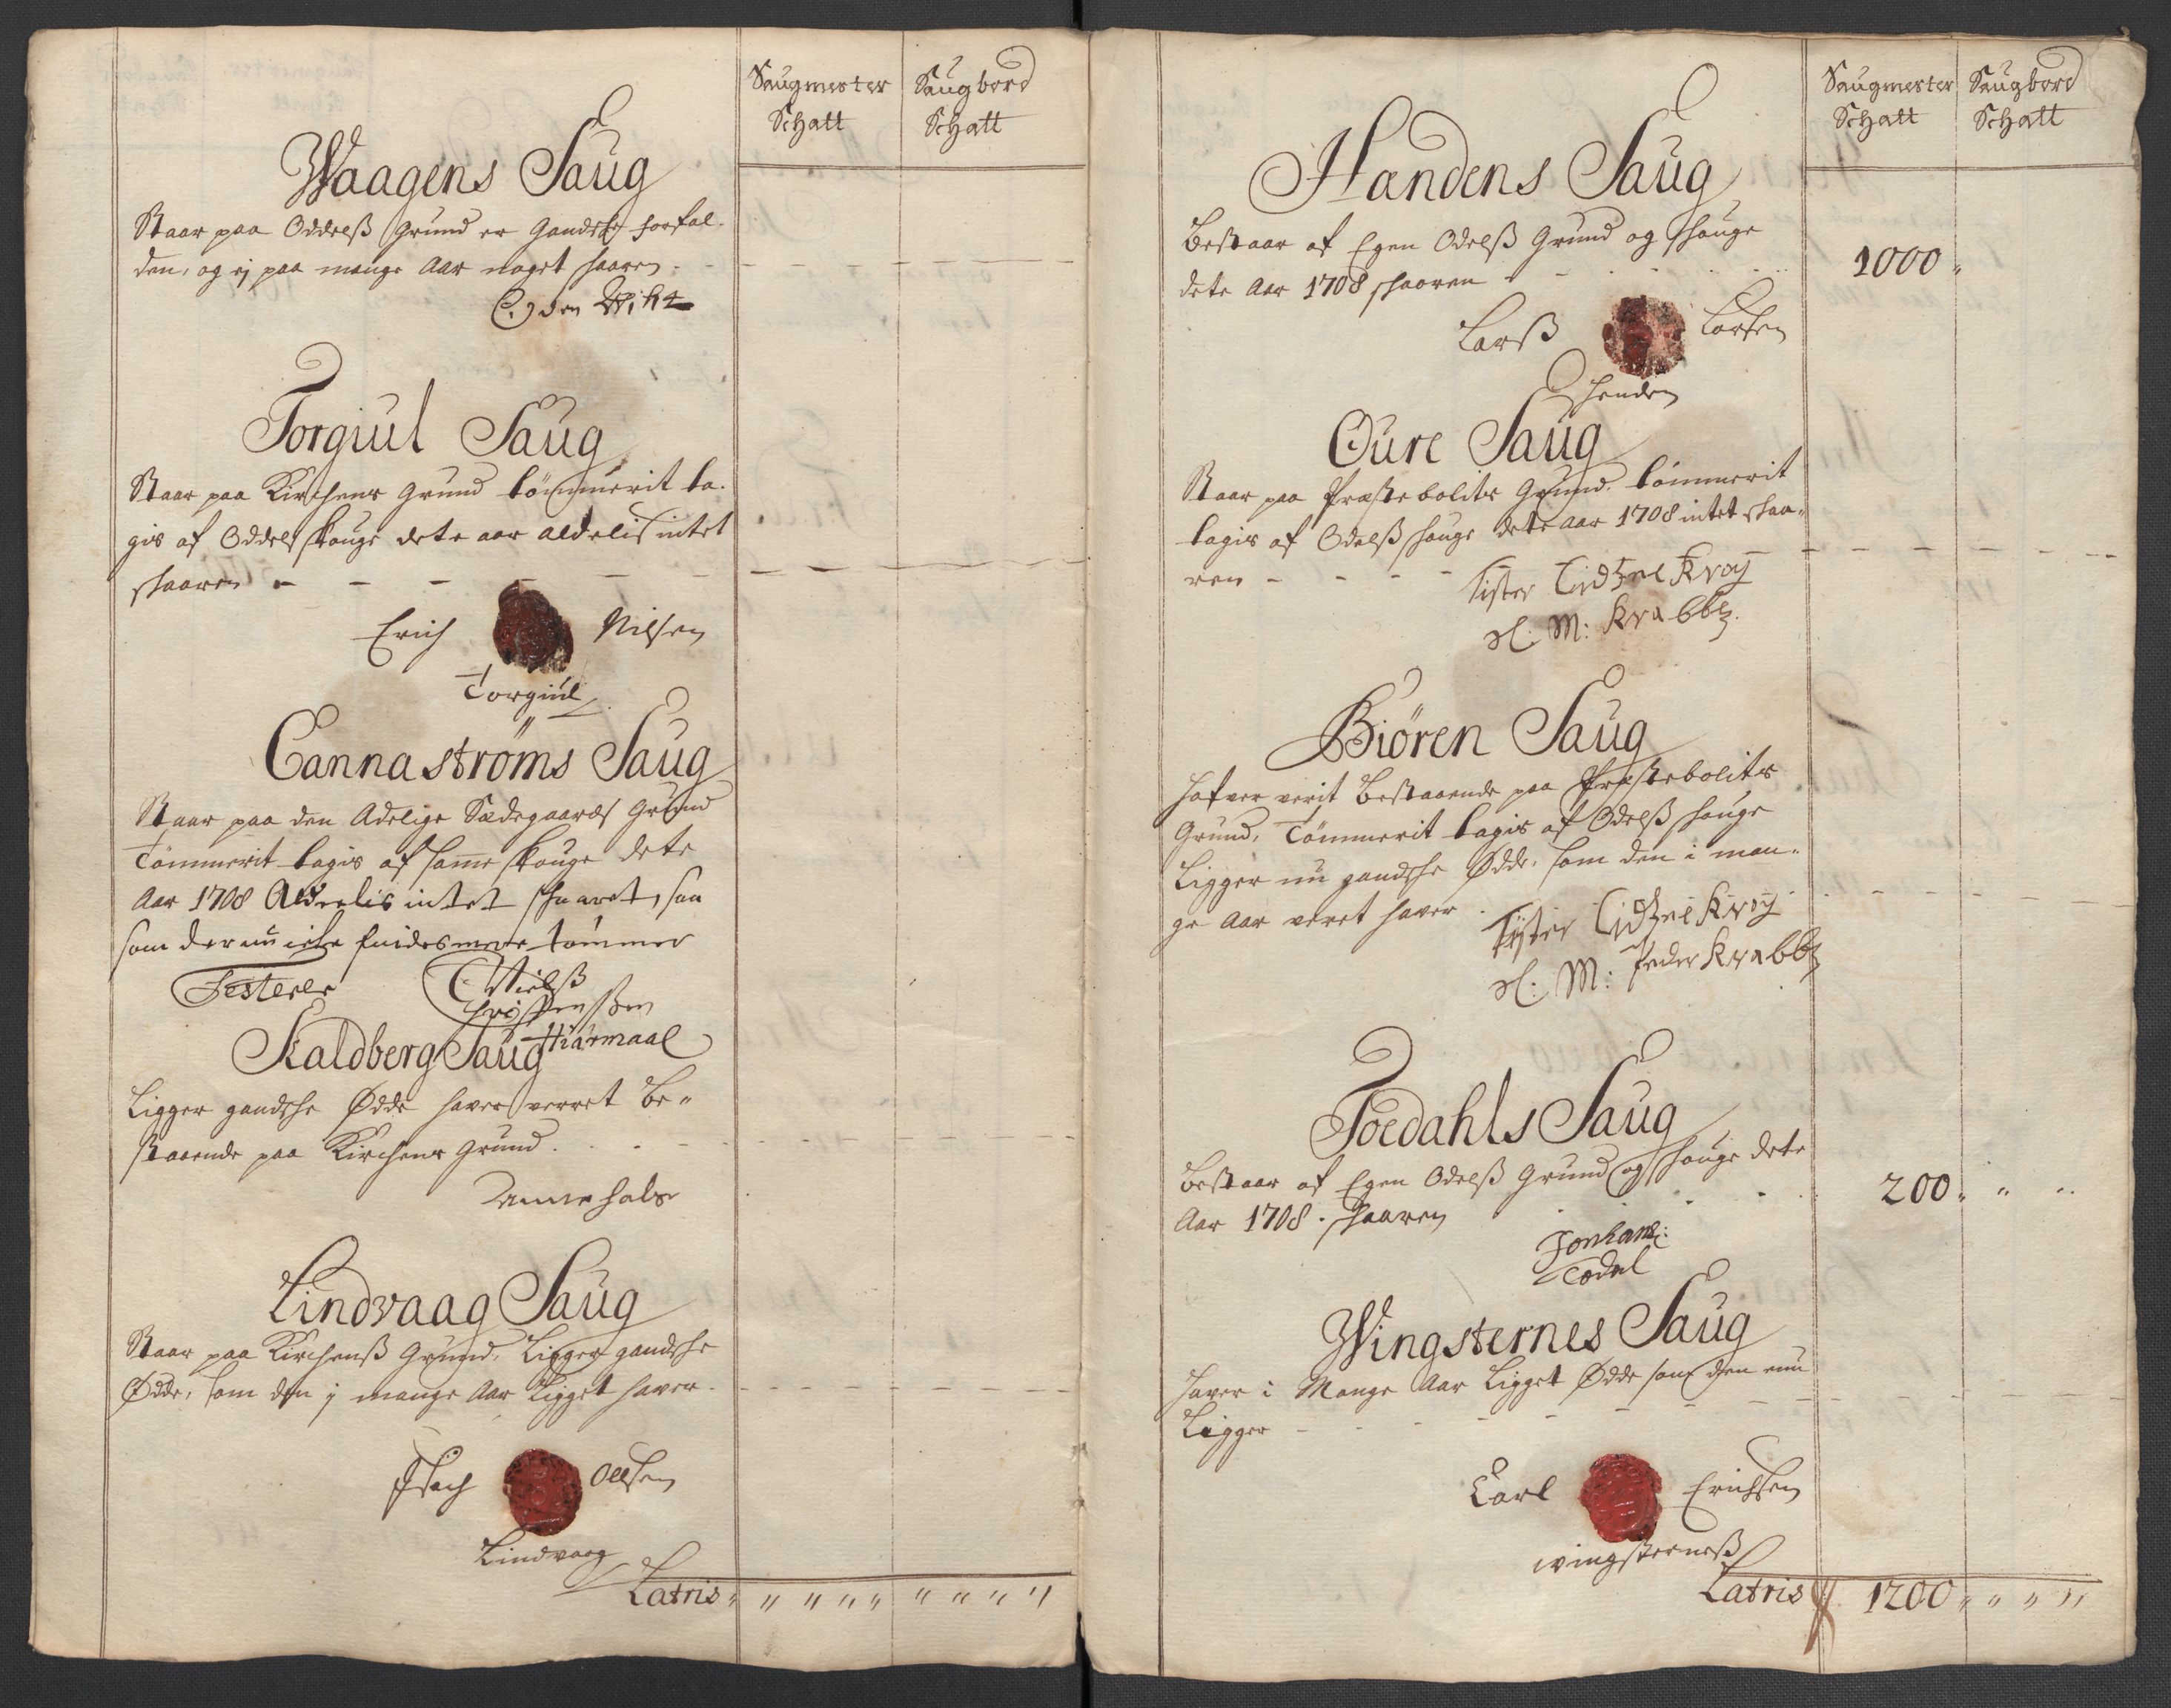 Saugmester Saugbord
Schatt Schatt
Waagens Saug
Staar paa Oddelß Grund er Gandske forfal-
den, og ej paa mange Aar noget skaaren
Torgiul Saug
Staar paa Kirchens Grund tömmerit ta-
gis af Oddelskouge dete aar aldelis intet
skaaren
Erich Nilsen
Torgiul
Cannaströms Saug
Staar paa den Adelige Sædegaards Grund
Tömmerit tagis af samme skouge dete
Aar 1708 Aldeelis intet skaaret, saa
som der nu icke findes mere tömmer
Testerer Nielß
Christenssen
Hiarmaal
Skaldberg Saug
Ligger gandske Ødde haver verret Be-
staaende paa Kirchens Grund.
Lindvaag Saug
Staar paa Kirchenß Grund, Ligger gandske
Ødde, som den j mange Aar Ligget haver.
Isach Olsen
Lindvaag
Latris
Saugmester Saugbord
Schatt Schatt
Handens Saug
Bestaar af Egen Odelß Grund og skouge
dete Aar 1708 skaaren 1000
Larß Larsen
Handen
Oure Saug
Staar paa Præstebolits Grund. tömmerit
tagis af Odelß skouge dete Aar 1708 intet skaa-
ren
M: Krabbe.
Biören Saug
Hafver verit Bestaaende paa Præstebolits
Grund, Tömmerit tagis af Odelß skouge
Ligger nu gandske Ødde, som den i man-
ge Aar veret haver
M: Peder Krabbe
Toedahls Saug
Bestaar af Egen Odelß Grund og skouge dete
Aar 1708. skaaren 200
Todal
Wingsternes Saug
Haver i Mange Aar Ligget Ødde som den enu
Ligger
Carl Erichsen
wingsterneß
Latris 1200